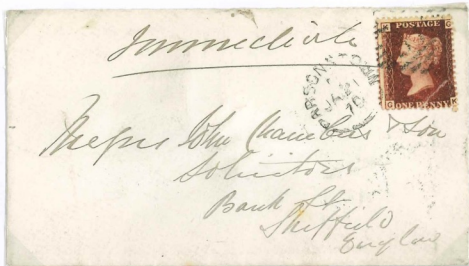 Immediate
POSTAGE
ONE PENNY
PARSONSTOWN
JA 21
70
Messrs John Chambers & Son
Solicitors
Bank St.
Sheffield
England